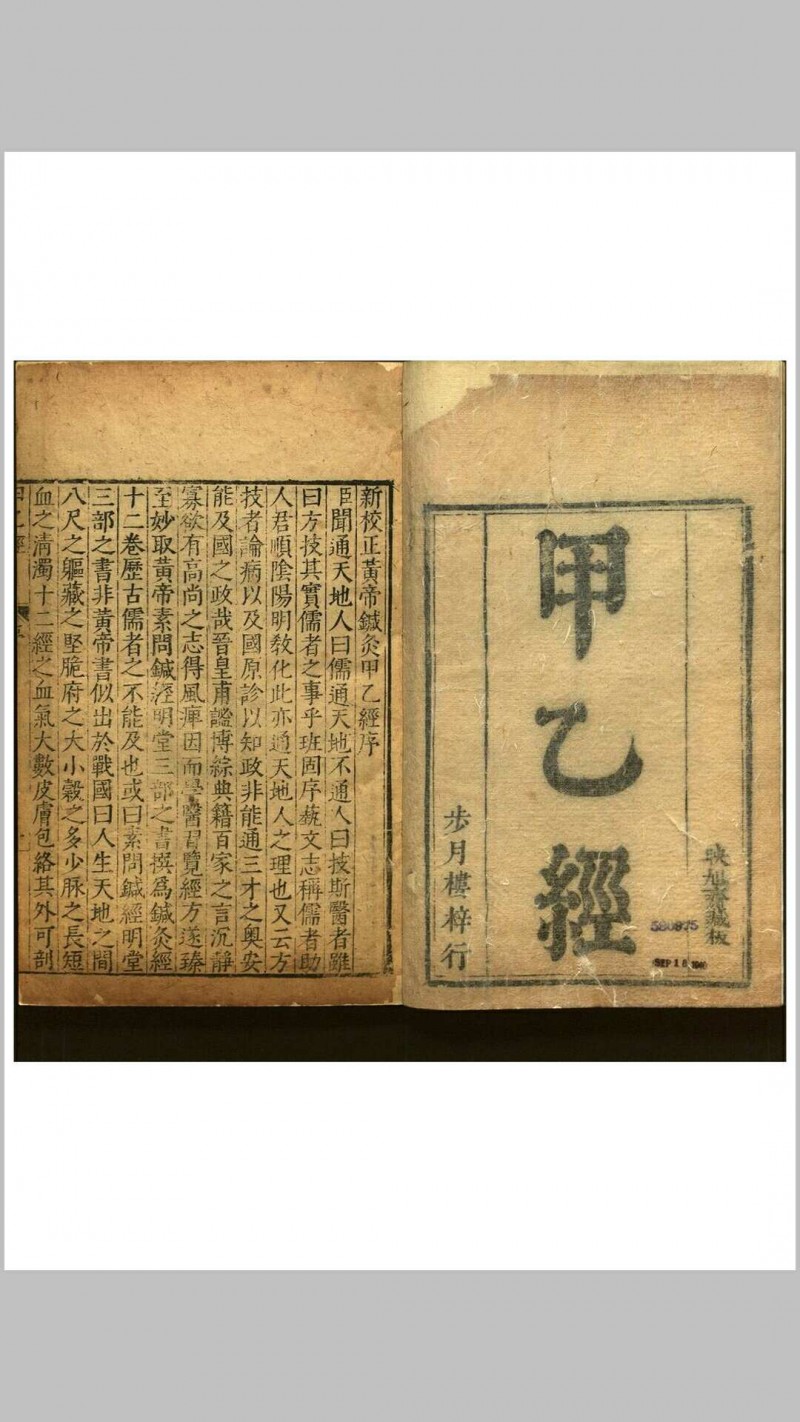 映旭齋藏板
甲乙經
步月樓梓行
580975
SEP 16
新校正黃帝鍼灸甲乙經序
臣聞通天地人曰儒通天地不通人曰技斯醫者雖
曰方技其實儒者之事乎班固序藝文志稱儒者助
人君順陰陽明教化此亦通天地人之理也又云方
技者論病以及國原診以知政非能通三才之奧安
能及國之政哉晉皇甫謐博綜典籍百家之言沉靜
寡欲有高尚之志得風痺因而學醫習覽經方遂臻
至妙取黃帝素問鍼經明堂三部之書撰爲鍼灸經
十二卷歷古儒者之不能及也或曰素問鍼經明堂
三部之書非黃帝書似出於戰國曰人生天地之間
八尺之軀藏之堅脆府之大小穀之多少脉之長短
血之清濁十二經之血氣大數皮膚包絡其外可剖
甲乙經 序